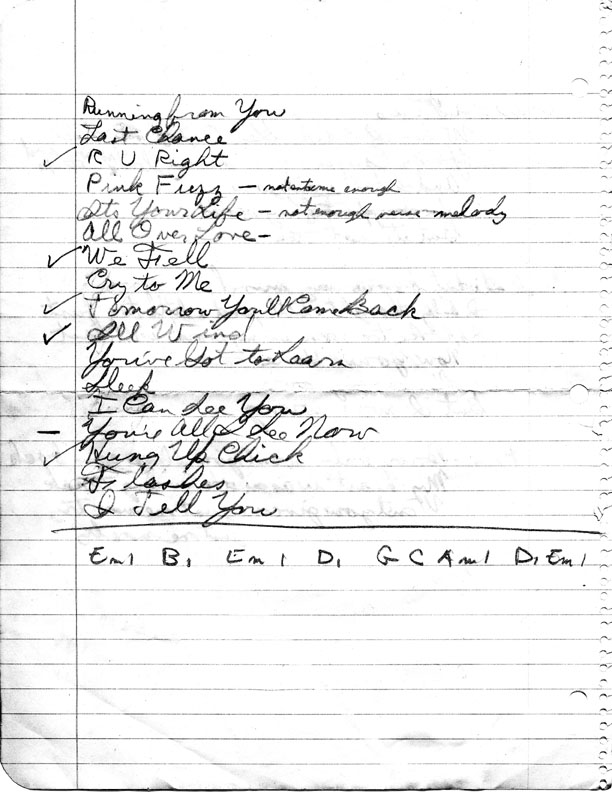 Running from You
Last Chance
✓ R U Right
Pink Fuzz – not extreme enough
Its Your Life – not enough verse melody
All Over Love –
✓ We Fell
Cry to Me
✓ Tomorrow You'll Come Back
✓ Ill Wind
You've Got to Learn
Sleep
I Can See You
– You're All I See Now
✓ Hung Up Chick
Flashes
I Tell You
Em | B | Em | D | G C Am | D | Em |